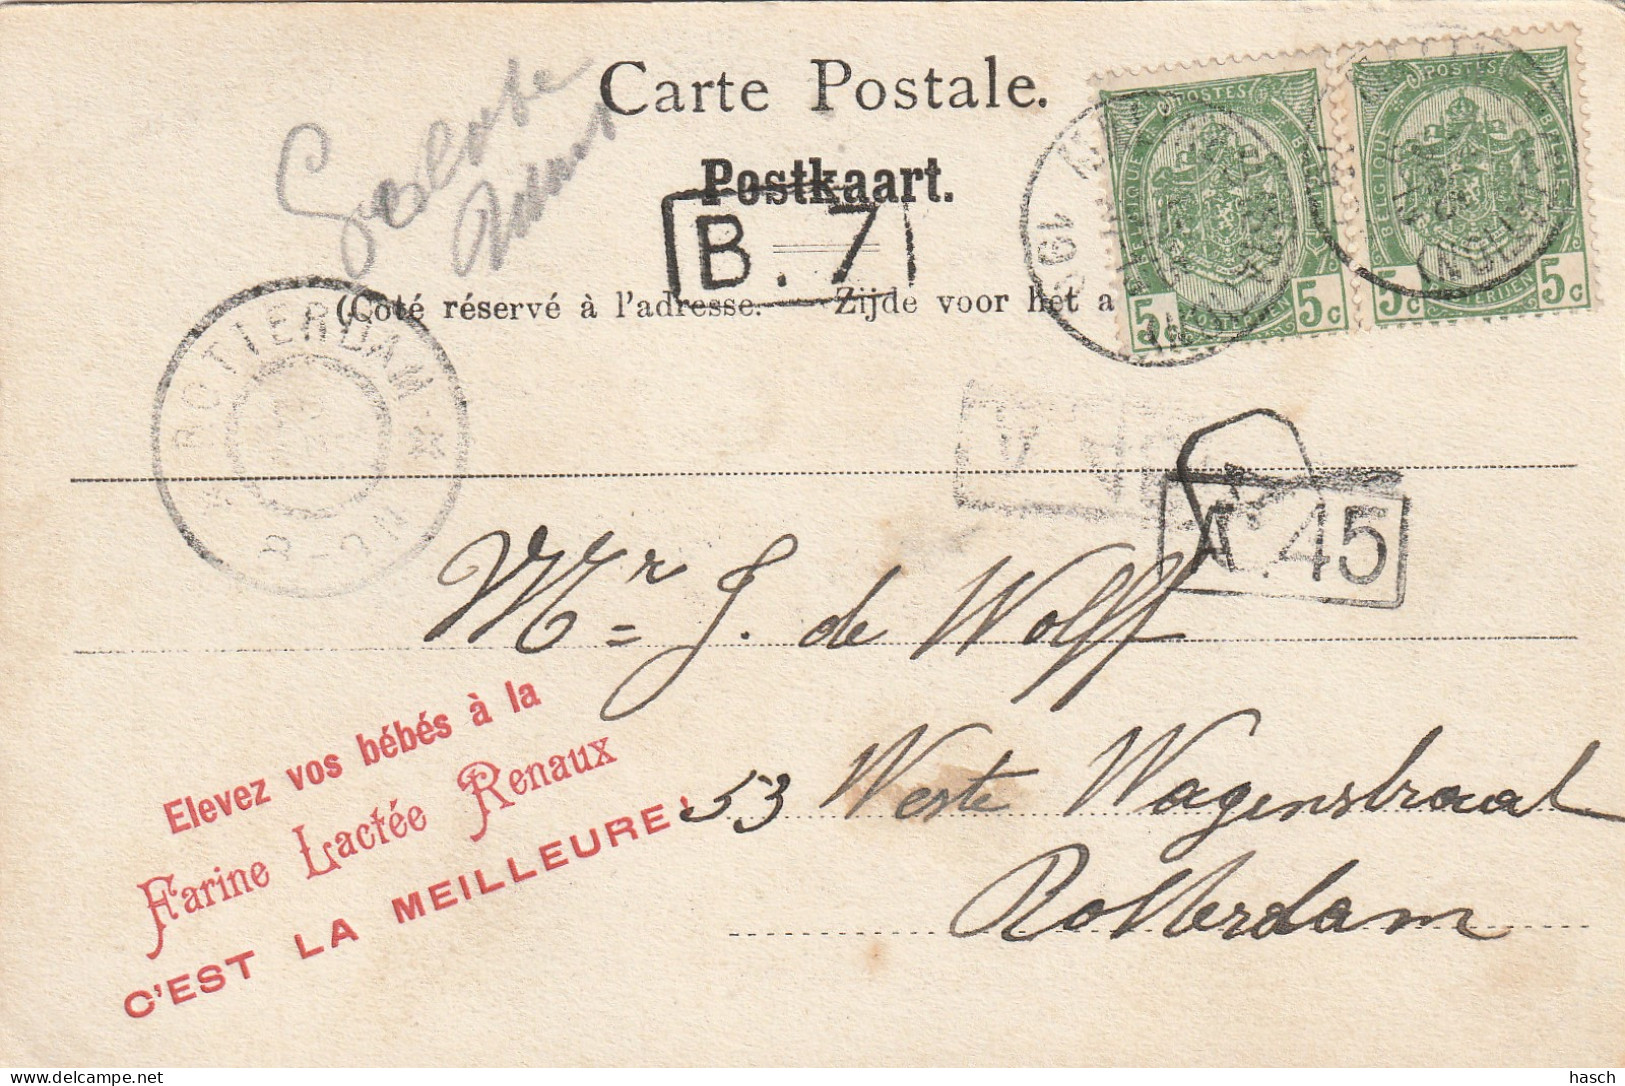 Carte Postale.
Postkaart.
B. 7
(Côté réservé à l'adresse. Zijde voor het a
POSTES
BELGIQUE BELGIE
5c 5c
POSTERIJEN
POSTES
BELGIQUE BELGIE
5c 5c
POSTERIJEN
ROTTERDAM
A. 45
Mr J. de Wolff
53 Weste Wagenstraat
Rotterdam
Elevez vos bébés à la
Farine Lactée Renaux
C'EST LA MEILLEURE!
hasch